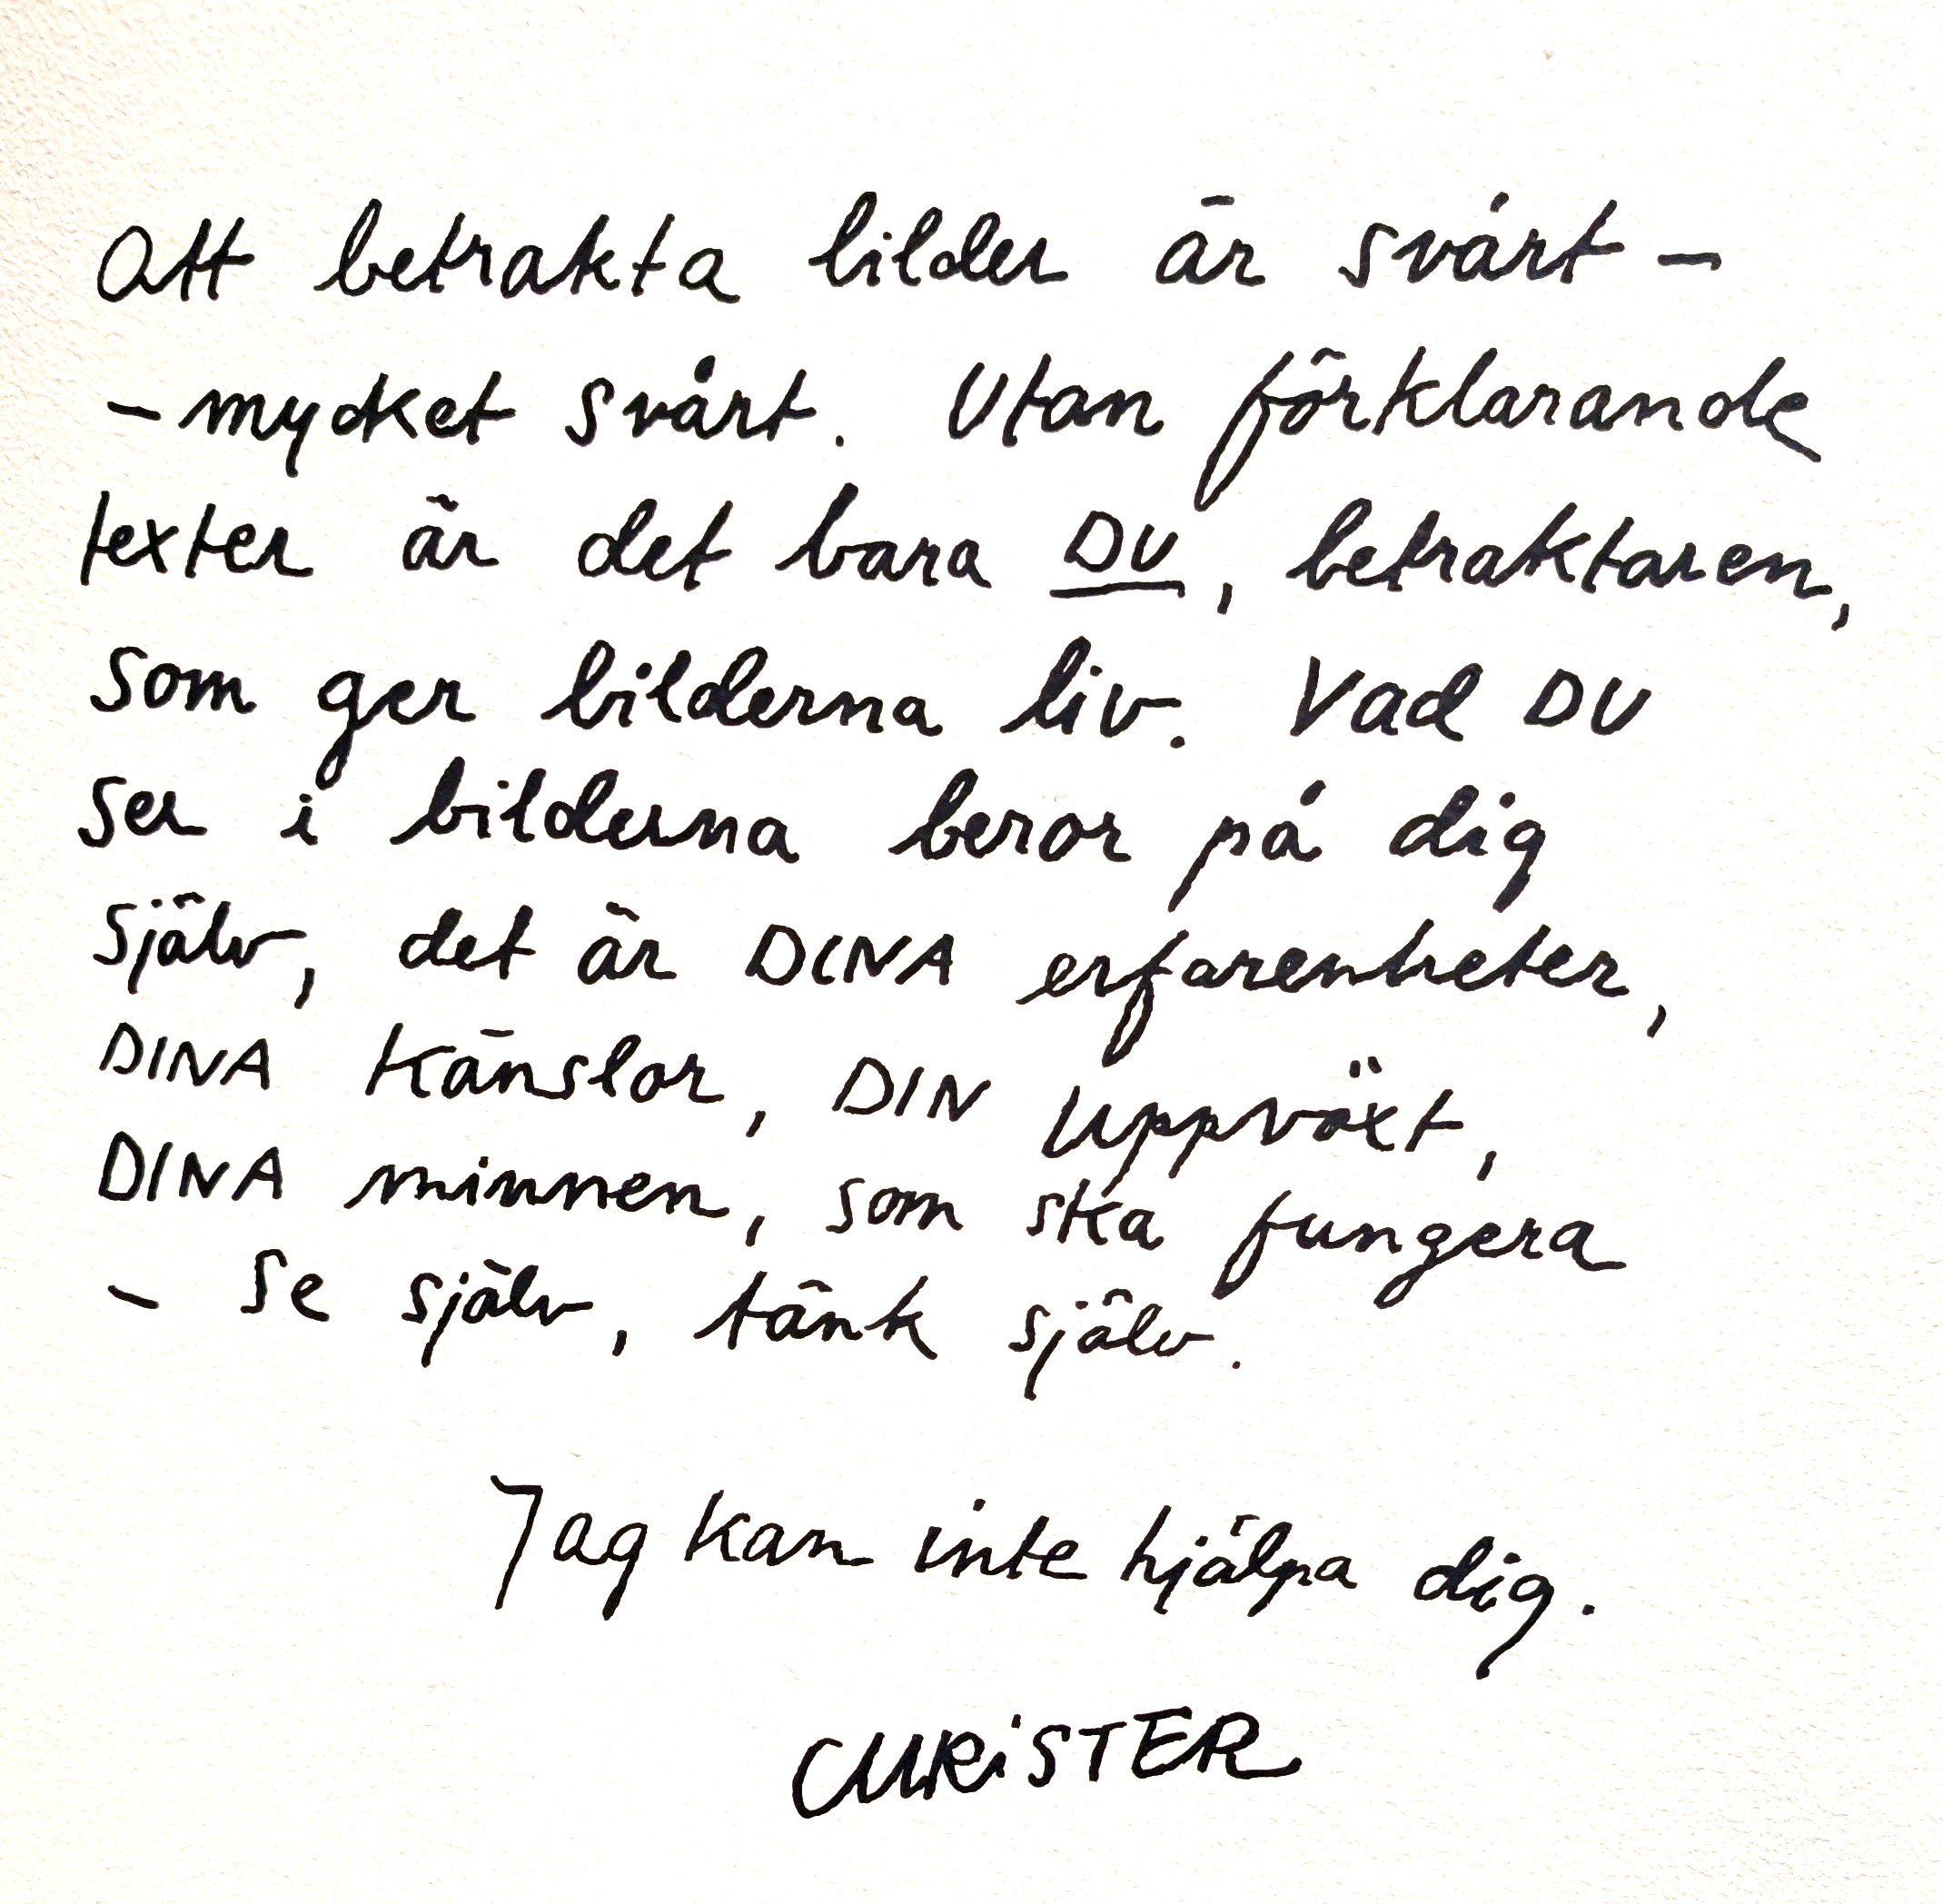 Att betrakta bilder är svårt –
– mycket svårt. Utan förklarande
texter är det bara DU, betraktaren,
som ger bilderna liv. Vad DU
ser i bilderna beror på dig
själv, det är DINA erfarenheter,
DINA känslor, DIN uppväxt,
DINA minnen, som ska fungera
– se själv, tänk själv.
Jag kan inte hjälpa dig.
CHRISTER